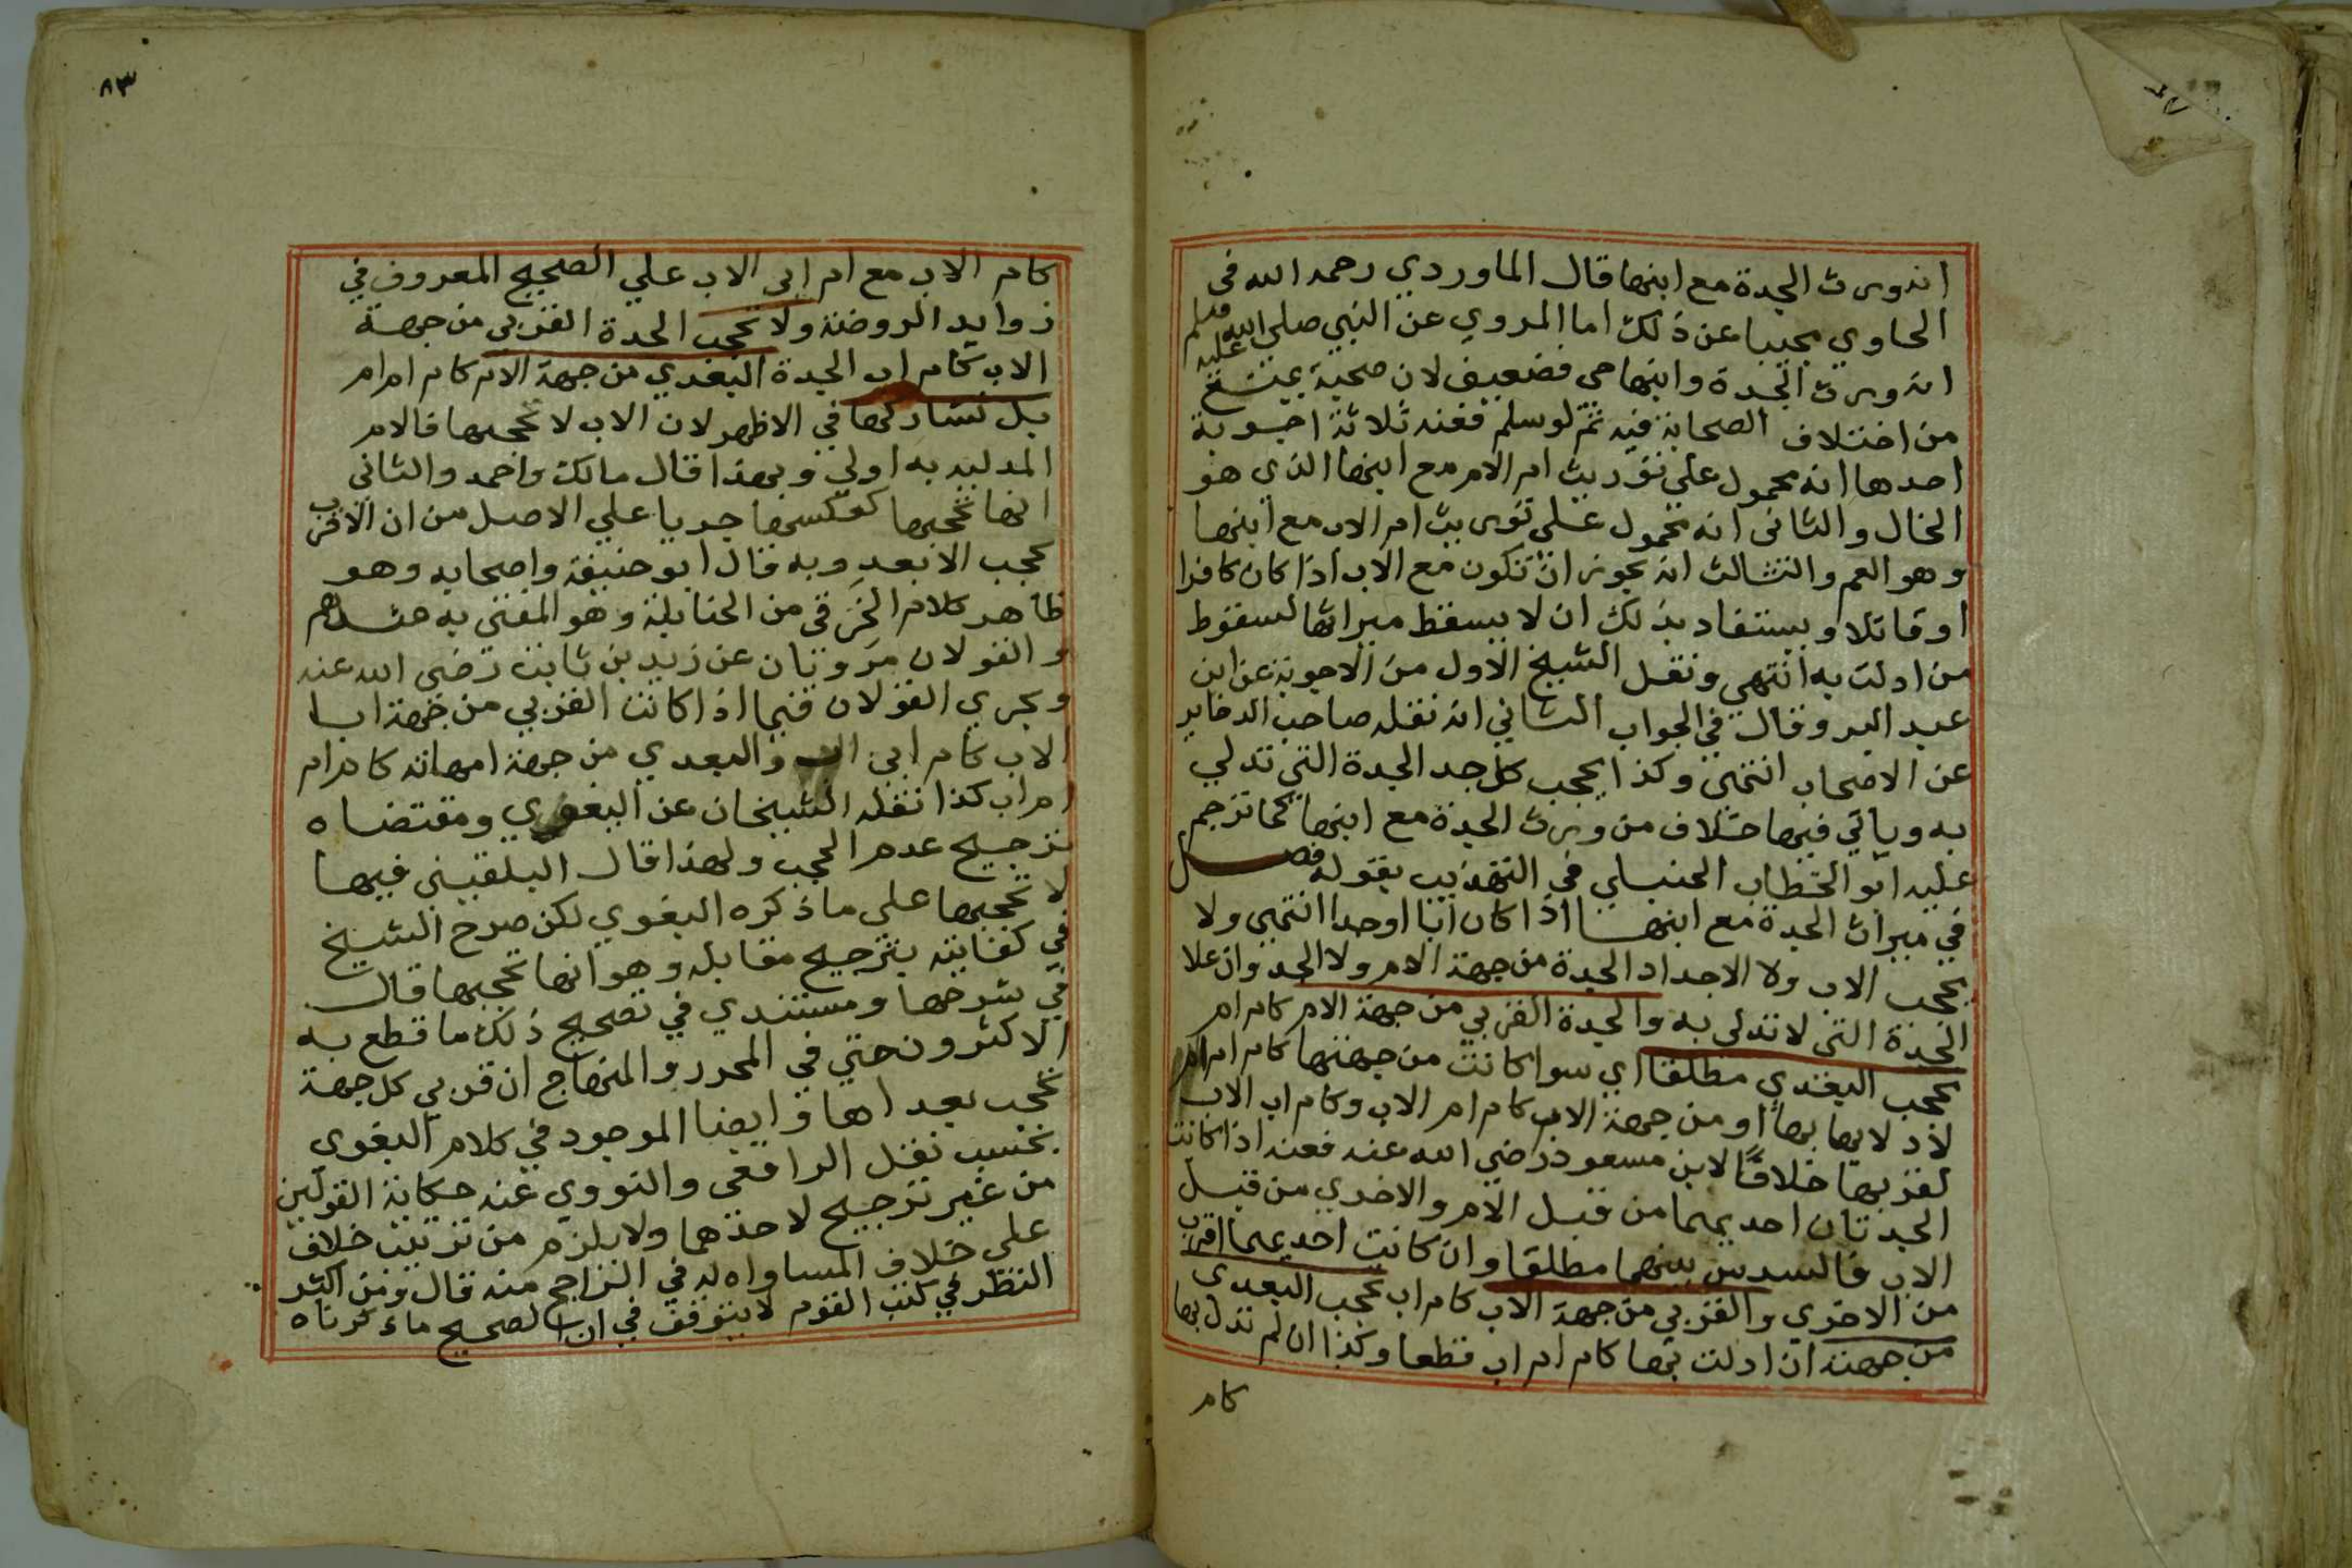 انه ورث الجدة مع ابنها قال الماوردي رحمه الله في
الحاوي مجيبا عن ذلك اما المروي عن النبي صلى الله عليه وسلم
انه ورث الجدة وابنها حي فضعيف لان صحبه يمنع
من اختلاف الصحابة فيه ثم لو سلم فعنه ثلاثة اجوبة
احدها انه محمول على توريث ام الام مع ابنها الذي هو
الخال والثاني انه محمول على توريث ام الاب مع ابنها
وهو العم والثالث انه يجوز ان تكون مع الاب اذا كان كافرا
او قاتلا ويستفاد بذلك ان لا يسقط ميراثها لسقوط
من ادلت به انتهي ونقل الشيخ الاول من الاجوبة عن ابن
عبد البر وقال في الجواب الثاني انه نقله صاحب الدخاير
عن الاصحاب انتهى وكذا يحجب كل جد الجدة التي تدلي
به وياتي فيها خلاف من ورث الجدة مع ابنها كما ترجم
عليه ابو الخطاب الحنبلي في التهذيب بقوله فصل
في ميراث الجدة مع ابنها اذا كان ابا او جدا انتهى ولا
يحجب الاب ولا الاجداد الجدة من جهة الام ولا الجد وان علا
الجدة التي لا تدلي به والجدة القربي من جهة الام كام ام
تحجب البعدي مطلقا اي سوا كانت من جهتها كام ام ام
لادلايها بها او من جهة الاب كام ام الاب وكام اب الاب
لقربها خلافًا لابن مسعود رضي الله عنه فعنه اذا كانت
الجدتان احديهما من قبل الام والاخري من قبل
الاب فالسدس بينهما مطلقا وان كانت احديهما اقرب
من الاخري والقربي من جهة الاب كام اب تحجب البعدي
من جهته ان ادلت بها كام ام اب قطعا وكذا ان لم تدل بها
كام
٨٣
كام الاب مع ام ابي الاب علي الصحيح المعروف في
زوايد الروضة ولا تحجب الجدة القربي من جهة
الاب كام اب الجدة البعدي من جهة الام كام ام ام
بل تشاركها في الاظهر لان الاب لا تحجبها فالام
المدلية به اولي وبهذا قال مالك واحمد والثاني
انها تحجبها كعكسها جريا علي الاصل من ان الاقرب
يحجب الابعد وبه قال ابو حنيفة واصحابه وهو
ظاهر كلام الخرقي من الحنابلة وهو المفتي به عندهم
والقولان مرويان عن زيد بن ثابت رضي الله عنه
ويجري القولان فيما اذا كانت القربي من جهة ابا
الاب كام ابي الاب والبعدي من جهة امهاته كام ام
ام اب كذا نقله الشيخان عن البغوي ومقتضاه
ترجيح عدم الحجب ولهذا قال البلقيني فيها
لا تحجبها علي ما ذكره البغوي لكن صرح الشيخ
في كفايته بترجيح مقابله وهو انها تحجبها قال
في شرحها ومستندي في تصحيح ذلك ما قطع به
الاكثرون حتي في المحرر والمنهاج ان قربي كل جهة
تحجب بعداها وايضا الموجود في كلام البغوي
بحسب نقل الرافعي والنووي عنه حكاية القولين
من غير ترجيح لاحدهما ولا يلزم من ترتيب خلاف
علي خلاف المساواه له في الراجح منه قال ومن اكثر
النظر في كتب القوم لا يتوقف في ان الصحيح ما ذكرناه